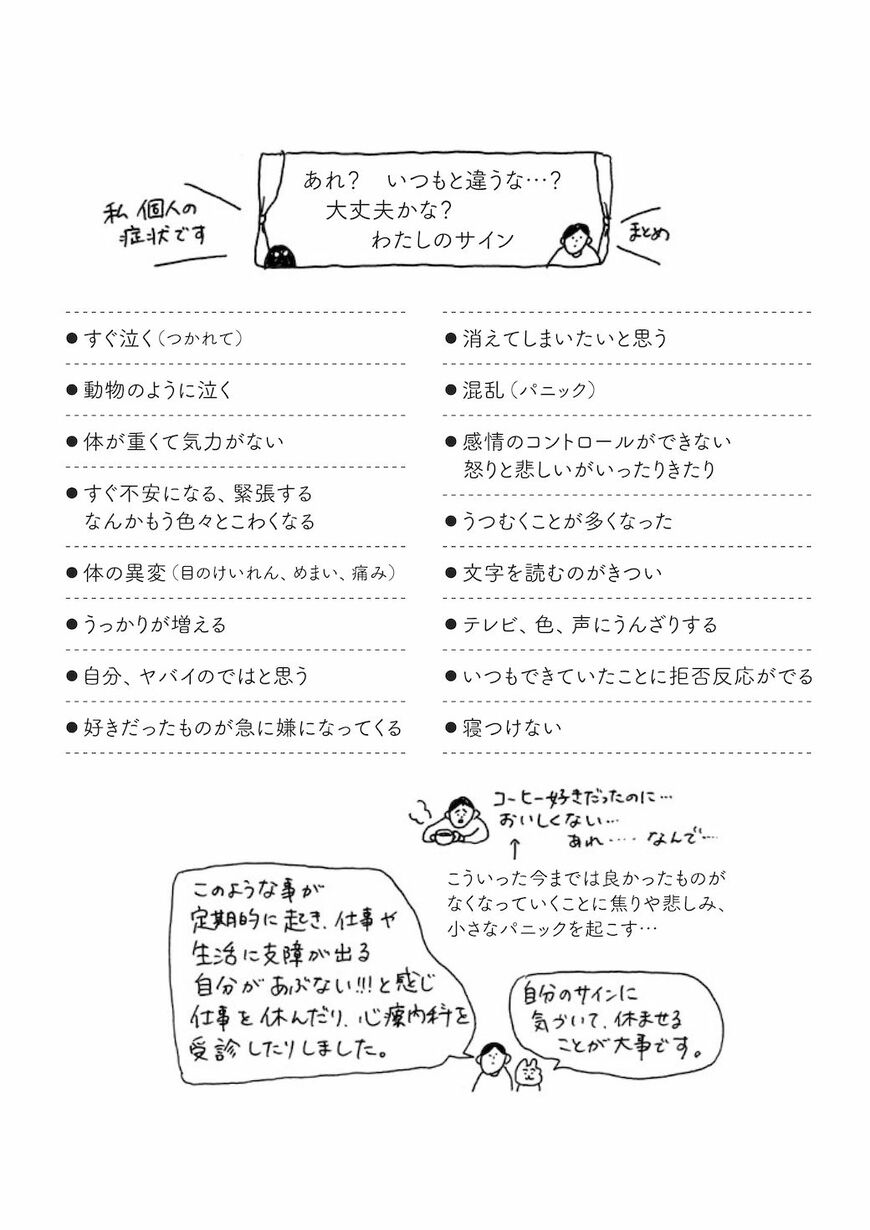 あれ？　いつもと違うな…？
大丈夫かな？
わたしのサイン
私 個人の
症状です
まとめ
●すぐ泣く（つかれて）
●動物のように泣く
●体が重くて気力がない
●すぐ不安になる、緊張する
なんかもう色々とこわくなる
●体の異変（目のけいれん、めまい、痛み）
●うっかりが増える
●自分、ヤバイのではと思う
●好きだったものが急に嫌になってくる
●消えてしまいたいと思う
●混乱（パニック）
●感情のコントロールができない
怒りと悲しいがいったりきたり
●うつむくことが多くなった
●文字を読むのがきつい
●テレビ、色、声にうんざりする
●いつもできていたことに拒否反応がでる
●寝つけない
コーヒー好きだったのに…
おいしくない…
あれ……なんで…
↑
こういった今までは良かったものが
なくなっていくことに焦りや悲しみ、
小さなパニックを起こす…
このような事が
定期的に起き、仕事や
生活に支障が出る
自分があぶない!!!と感じ
仕事を休んだり、心療内科を
受診したりしました。
自分のサインに
気がついて、休ませる
ことが大事です。